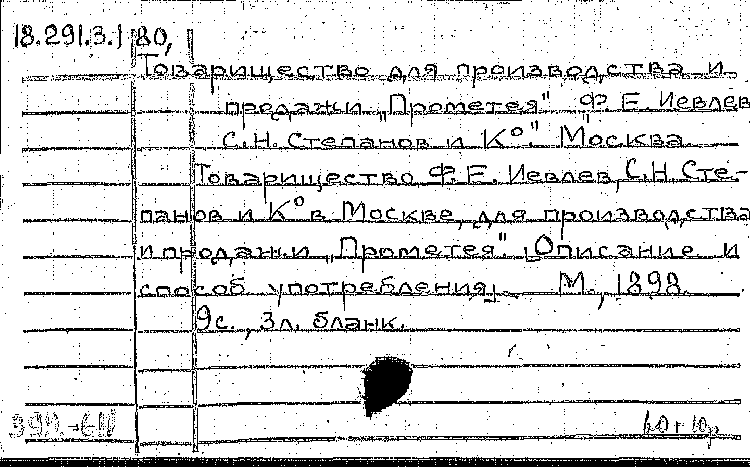 18.291.3.180,
Товарищество для производства и
продажи „Прометея" Ф. Е. Иевлев
С.Н. Степанов и К°." Москва
Товарищество Ф. Е. Иевлев, С.Н. Сте-
панов и К° в Москве, для производства
и продажи „Прометея" [Описание и
способ употребления]. М., 1898.
9с., 3л. бланк.